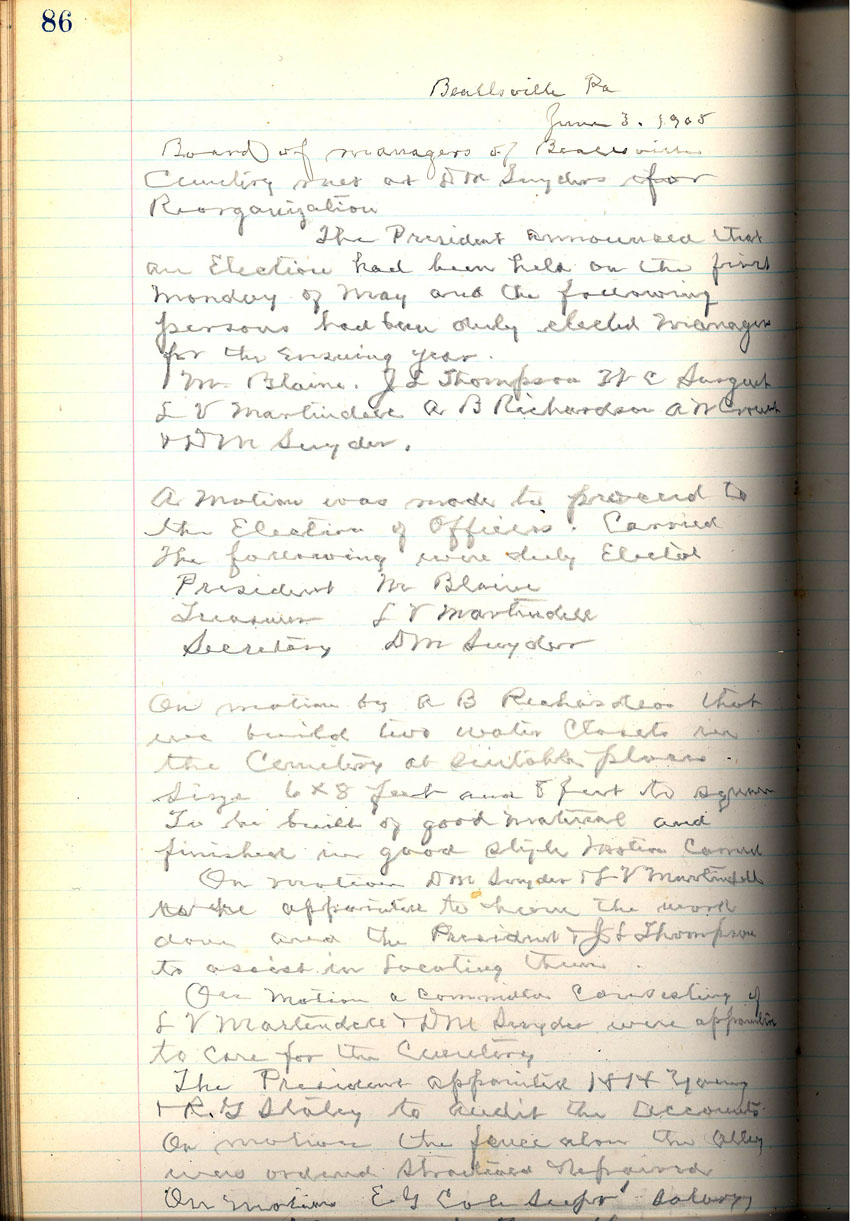 86
Beallsville Pa
June 3. 1905
Board of managers of Beallsville
Cemetery met at D M Snyders for
Reorganization
The President announced that
an Election had been held on the first
Monday of May and the following
persons had been duly elected Managers
for the Ensuing year.
Wm Blaine. J L Thompson W C Sargent
L V Martindell A B Richardson A W
& D M Snyder.
A Motion was made to proceed to
the Election of Officers. Carried
The following were duly Elected
President Wm Blaine
Treasurer L V Martindell
Secretary D M Snyder
On motion by A B Richardson that
we build two water Closets in
the Cemetery at suitable places.
Size 6 x 8 feet and 8 feet to square
To be built of good material and
finished in good style Motion Carried
On motion D M Snyder & L V Martindell
be appointed to have the work
done and the President & J L Thompson
to assist in Locating them.
On Motion a committee Consisting of
L V Martindell & D M Snyder were appointed
to Care for the Cemetery
The President appointed Young
& R. G Staley to Audit the Accounts
On motion the fence along the Alley
were ordered repaired
On Motion E G Cole Supr' Salary